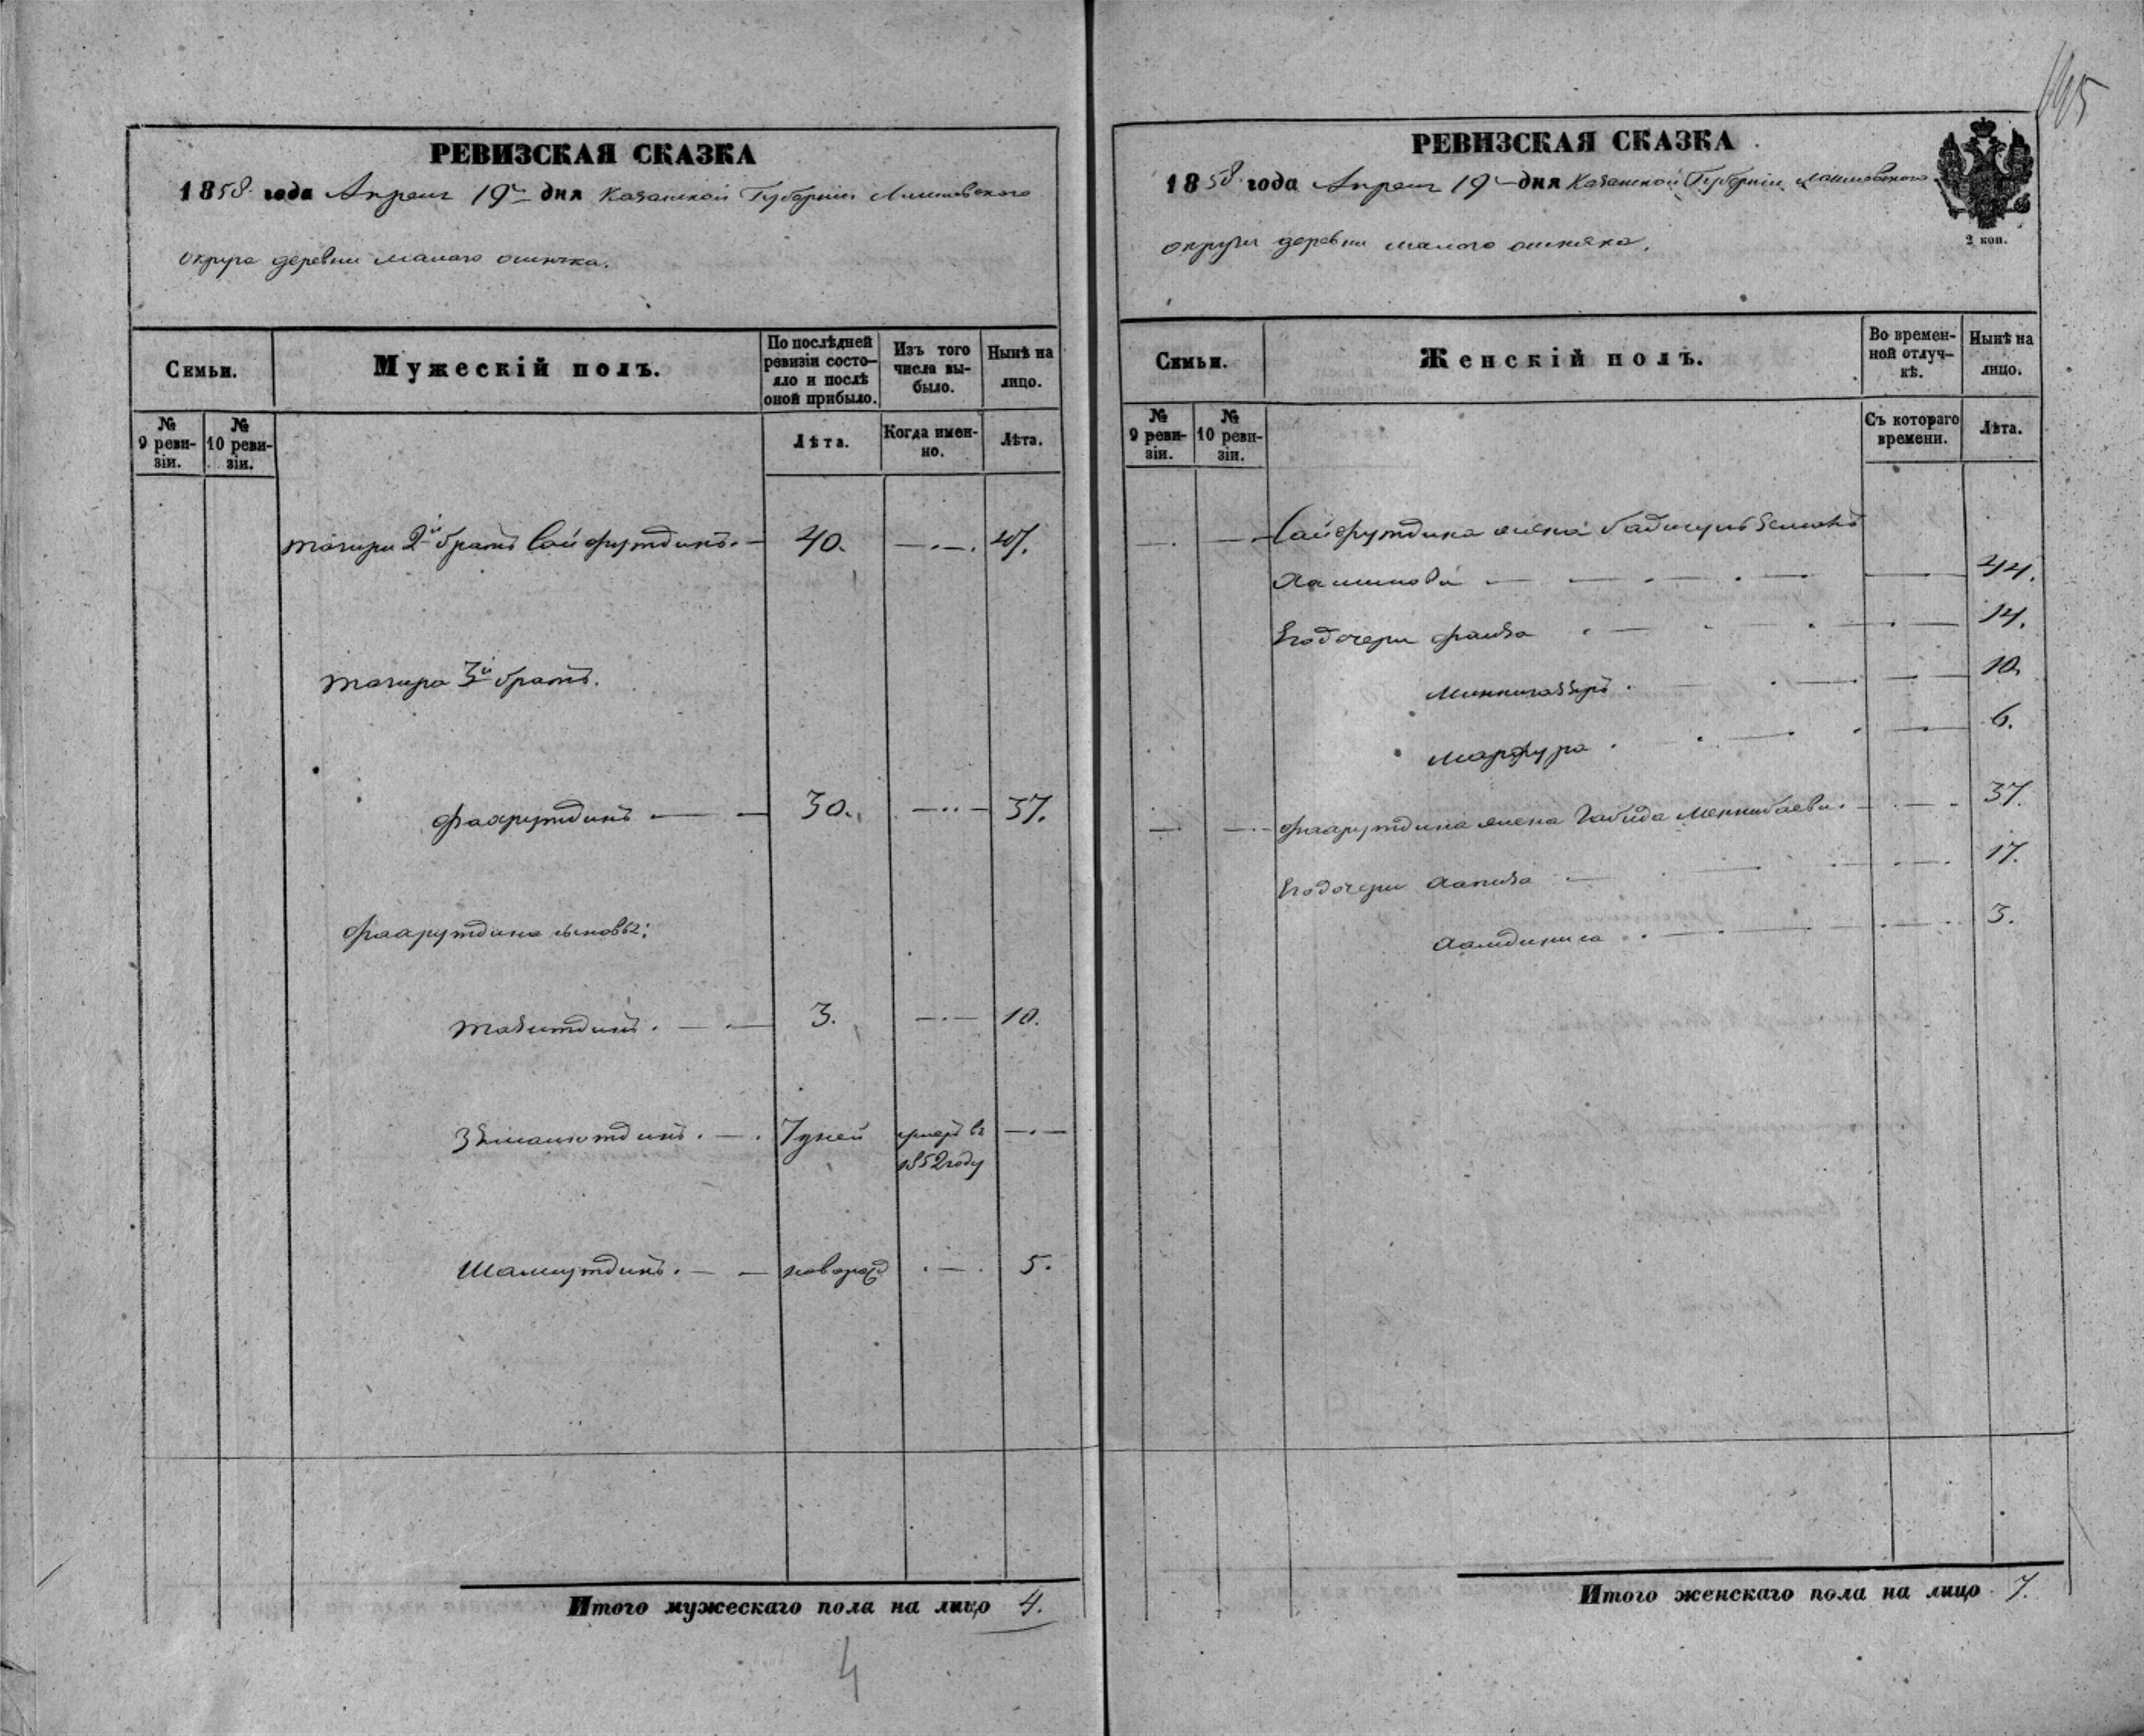 195
РЕВИЗСКАЯ СКАЗКА
1858 года Апреля 19го дня Казанской Губернiи Лаишевского
округа деревни малаго ошняка.
Семьи.
Мужескiй полъ.
По послѣдней ревизiи состо-яло и послѣ оной прибыло.
Изъ того числа вы-было.
Нынѣ на лицо.
№ 9 реви-зiи.
№ 10 реви-зiи.
Лѣта.
Когда имен-но.
Лѣта.
Тагира 2й братъ Сайфутдинъ. 40. 47.
Тагира 3й братъ.
Фаррутдинъ 30. 37.
Фаррутдина сыновья:
3. 10.
7 дней умеръ въ
1852 году
Шамсутдинъ. новорожд 5.
Итого мужескаго пола на лицо 4.
4
РЕВИЗСКАЯ СКАЗКА
1858 года Апреля 19го дня Казанской Губернiи Лаишевского
округа деревни малого ошняка.
2 коп.
Семьи.
Женскiй полъ.
Во времен-ной отлуч-кѣ.
Нынѣ на лицо.
№ 9 реви-зiи.
№ 10 реви-зiи.
Съ котораго времени.
Лѣта.
Сайфутдина жена
44.
Его дочери Фаиза 14.
10.
6.
Фаррутдина жена Габида 37.
Его дочери 17.
3.
Итого женскаго пола на лицо 7.